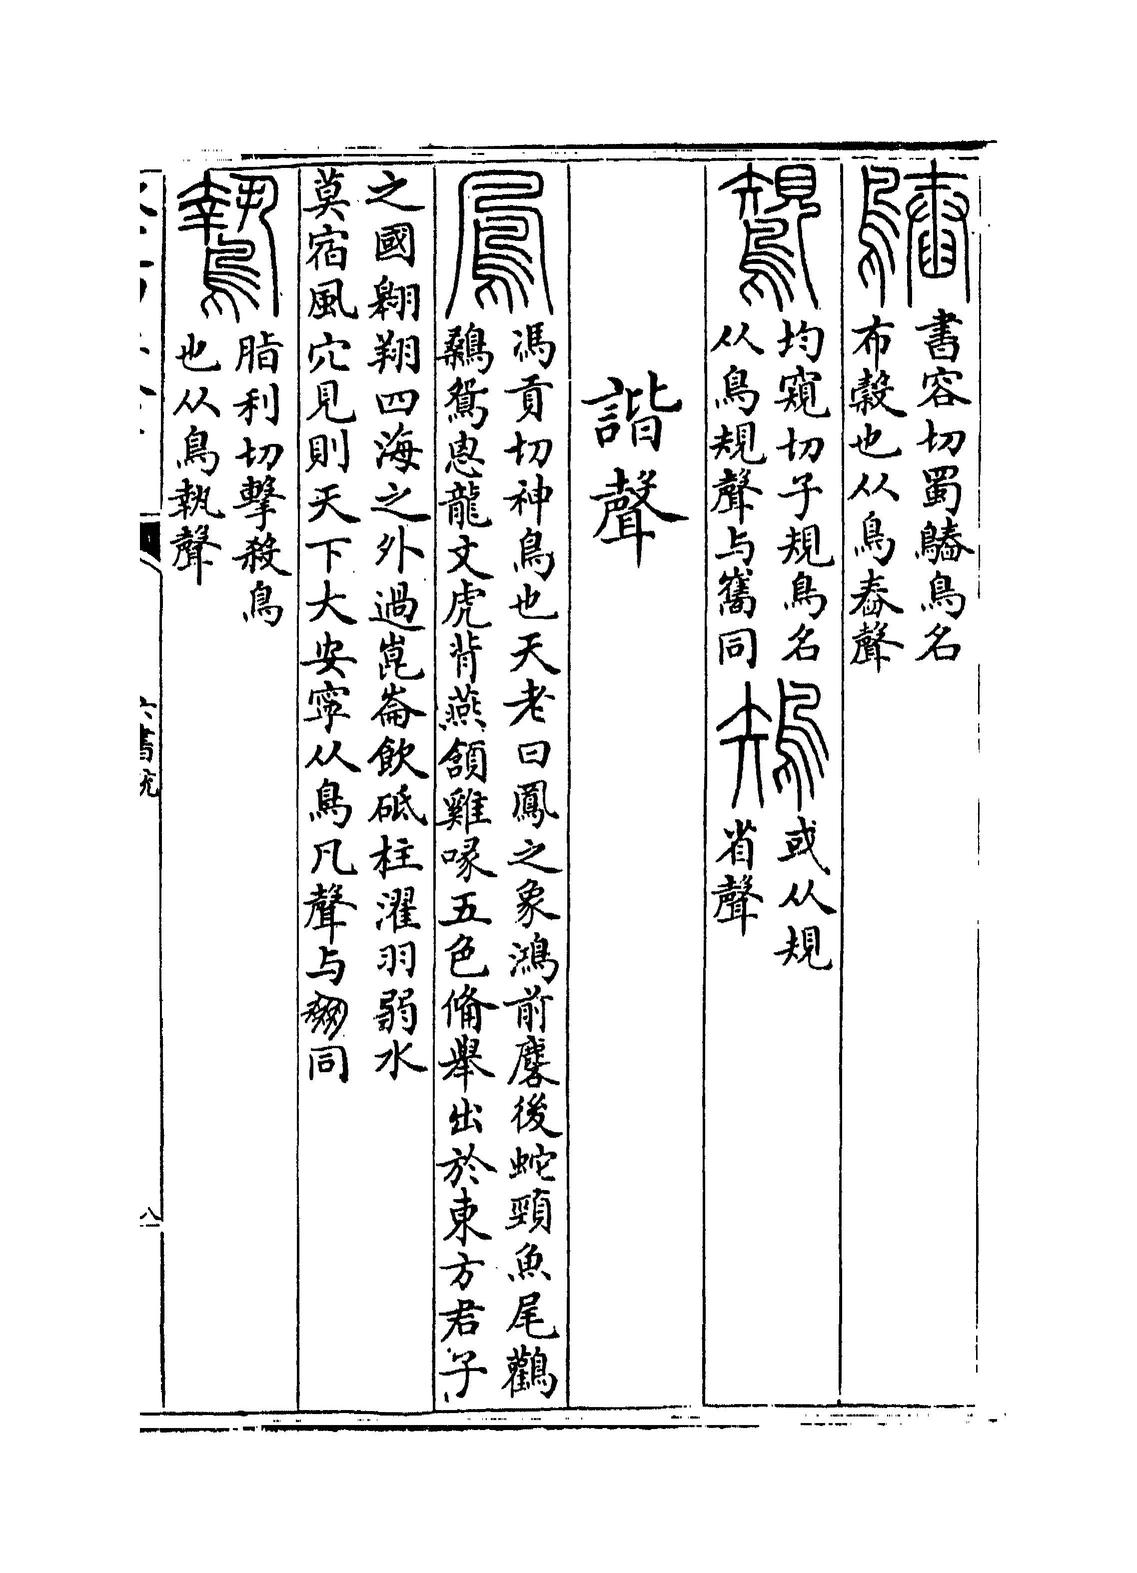 書容切蜀鱕鳥名
布穀也从鳥舂聲
均窺切子規鳥名
从鳥規聲与巂同
或从規
省聲
諧聲
馮貢切神鳥也天老曰鳳之象鴻前麐後蛇頸魚尾鸛
顙鴛思龍文虎背燕頷雞喙五色備舉出於東方君子
之國翺翔四海之外過崑崙飲砥柱濯羽弱水
莫宿風穴見則天下大安寧从鳥凡聲与同
脂利切擊殺鳥
也从鳥執聲
六書統
八